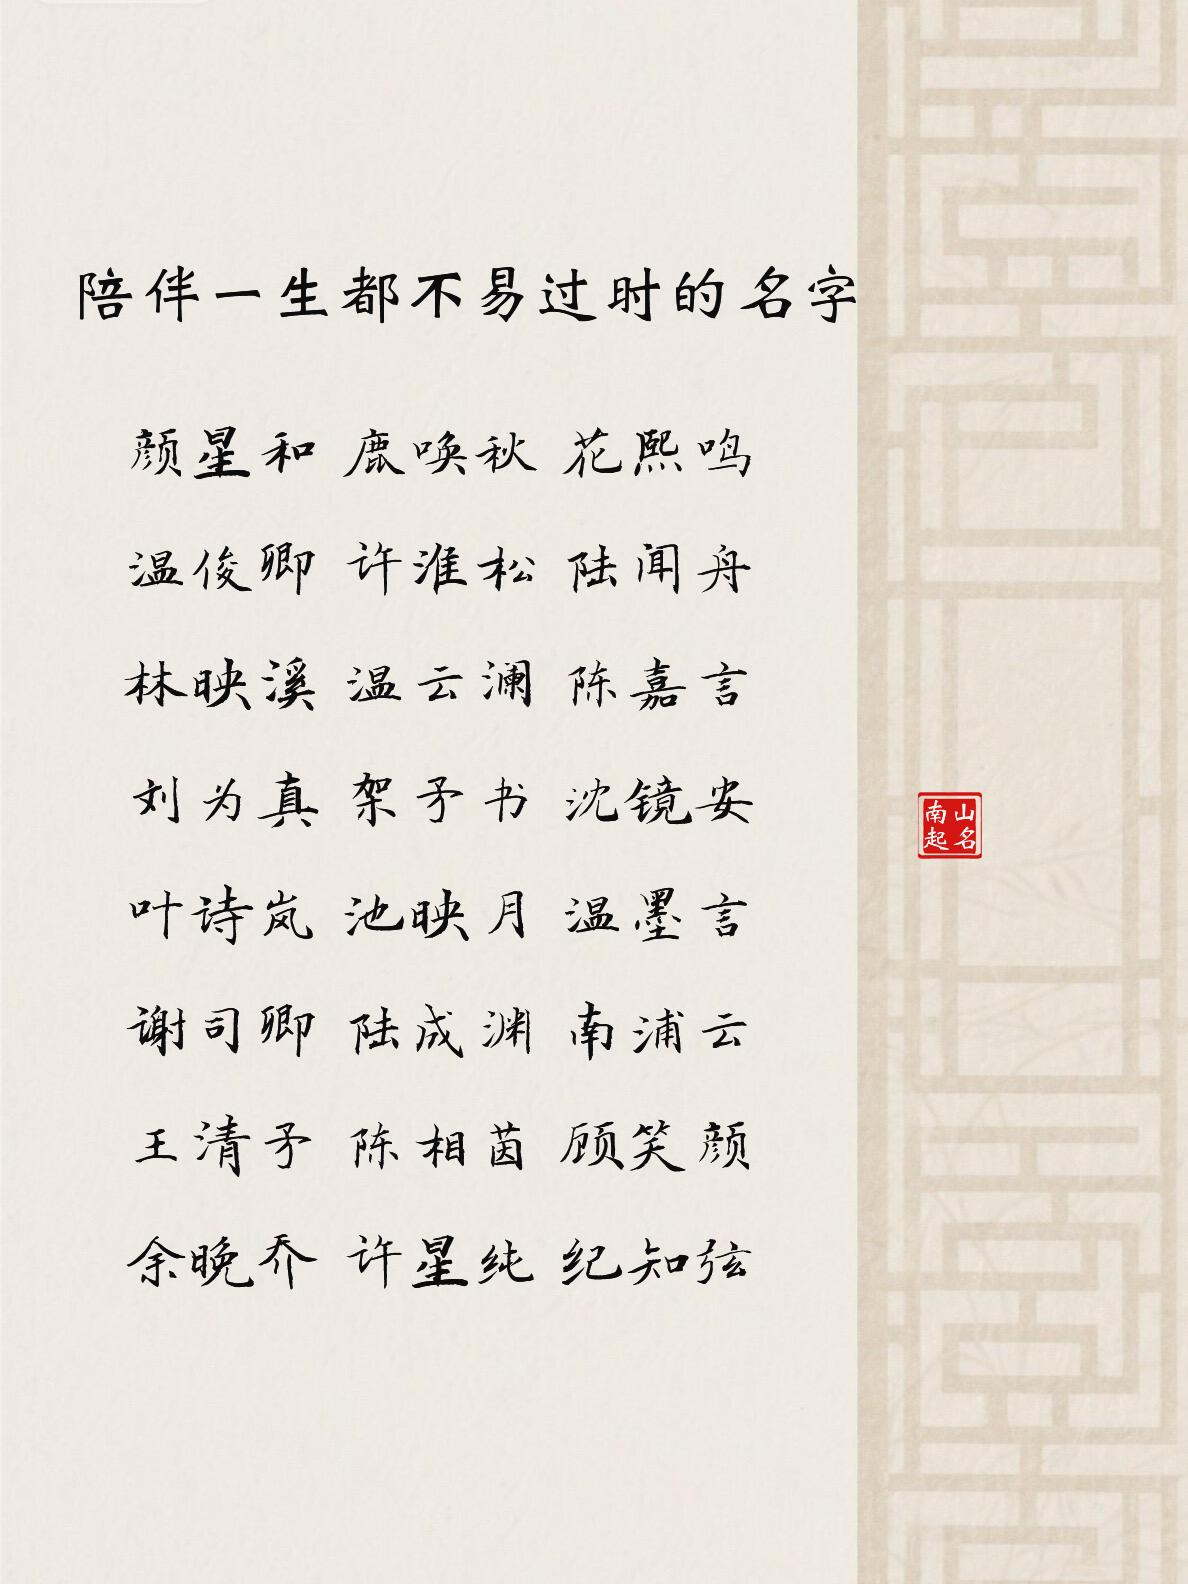 陪伴一生都不易过时的名字
颜星和 鹿唤秋 花熙鸣
温俊卿 许淮松 陆闻舟
林映溪 温云澜 陈嘉言
刘为真 架矛书 沈镜安
叶诗岚 池映月 温墨言
谢司卿 陆成渊 南浦云
王清矛 陈相茵 顾笑颜
余晚乔 许星纯 纪知弦
南山
起名